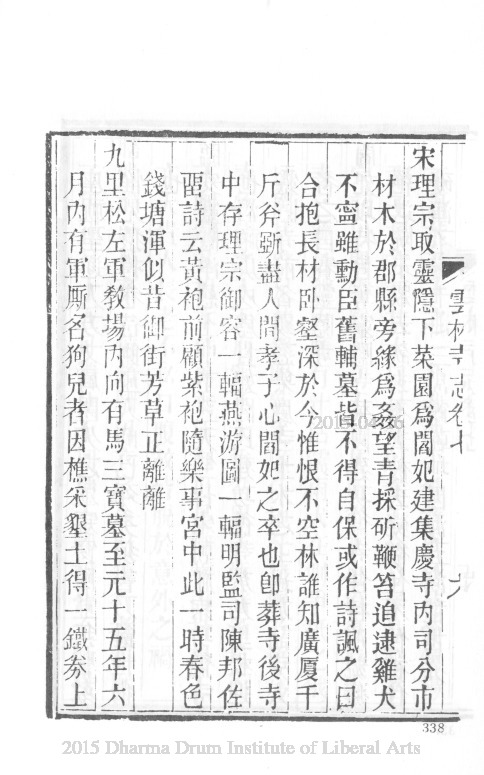 宋理宗取靈隱下菜園爲閻妃建集慶寺內司分市
材木於郡縣旁緣爲姦望青採斫鞭笞追逮雞犬
不寧雖勳臣舊輔墓皆不得自保或作詩諷之曰
合抱長材卧壑深於今惟恨不空林誰知廣厦千
斤斧斵盡人間孝子心閻妃之卒也卽葬寺後寺
中存理宗御容一輻燕游圖一輻明監司陳邦佐
畱詩云黃袍前顧紫袍隨樂事宮中此一時春色
錢塘渾似昔御街芳草正離離
九里松左軍敎場內向有馬三寶墓至元十五年六
月內有軍厮名狗兒者因樵采墾土得一鐵券上
雲林寺志卷七
338
2015 Dharma Drum Institute of Liberal Arts